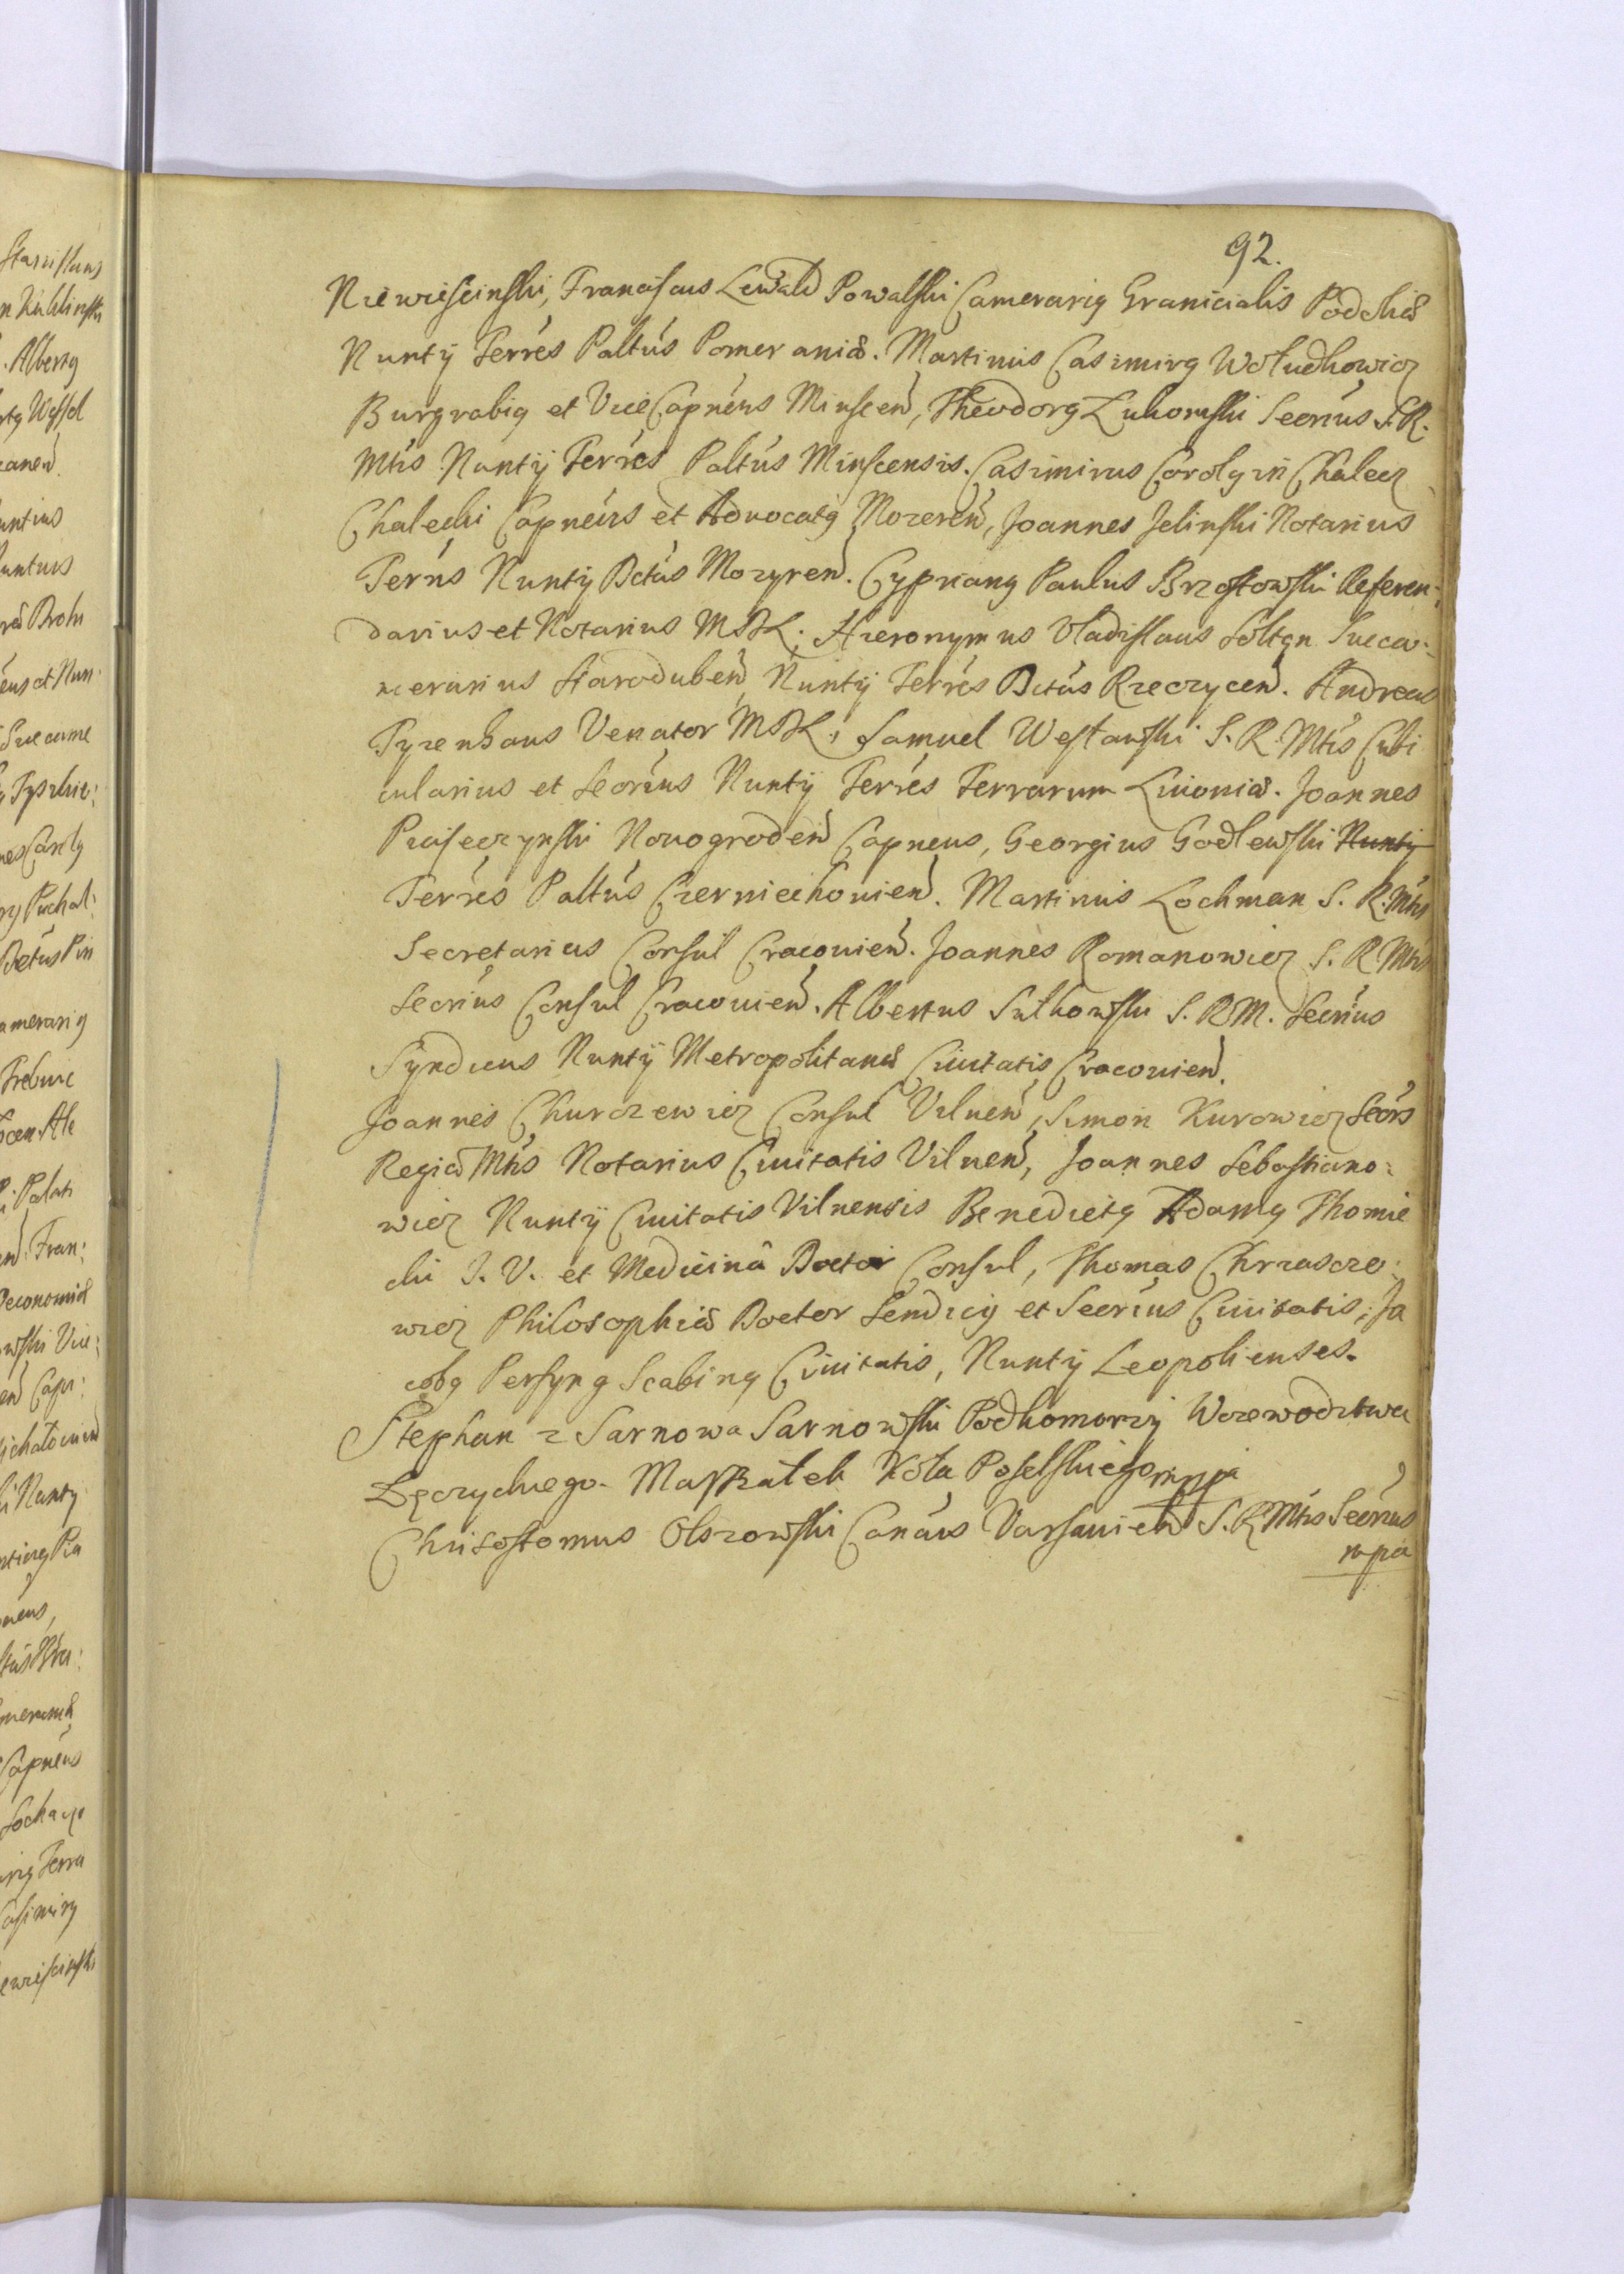 92.
Niewiescinski, Franciscus Lewald Powalski Camerarig Granicialis Podolia
Nuntÿ Terrés Paltús Pomerania. Martinus Casimirg Wołudkowicz
Burgrabig et ViceCapnéus Minscen, Theodorg Lukomski Secrius S. R.
Mtis Nuntÿ Terrés Paltús Minscensis. Casimirus Carolg in Chalecz
Chalecki Capnéus et Advocatg Mozeren, Joannes Jelinski Notarius
Terrús Nuntÿ Dctús Mozyren. Cypriang Paulus Brzostowski Referen-
darius et Notarius MDL, Hieronymus Vladislaus Soltan Succa-
merarius Staroduben, Nuntÿ Terrés Dctús Rzeczycen. Andreas
Tyzenhaus Venator MDL, Samuel Weslawski S. R. Mtis Cubi
cularius et Secrius Nuntÿ Terrés Terrarum Liuonia. Joannes
Piaseczynski Nouogroden Capneus, Georgius Godlewski Nuntÿ
Terrés Paltús Czerniechouien. Martinus Lochman S. R. Mtis
Secretarius Consul Cracouien. Joannes Romanowicz S. R Mtis
Secrius Consul Cracouien. Albertus Sułkowski S. R M. Secrius
Syndicus Nuntÿ Metropolitana Ciuitatis Cracouien.
Joannes Churczewicz Consul Vilnen, Simon Kurowicz Secrs
Regia Mtis Notarius Ciuitatis Vilnen, Joannes Sebastiano-
wicz Nuntÿ Ciuitatis Vilnensis Benedictg Adamg Thomie
cki J. V. et Medicina Doctor Consul, Thomas Chrzascze-
wicz Philosophia Doctor Sendicg et Secrius Ciuitatis, Ja
cobg Persyng Scabing Ciuitatis, Nuntÿ Leopolienses.
Stephan z Sarnowa Sarnowski Podkomorzy Woiewodztwa
Łęczyckiego. Marszałek Koła Poselskiego mppa
Chrisostomus Olszowski Canáus Varsauien S. R Mtis Secrius
mpa